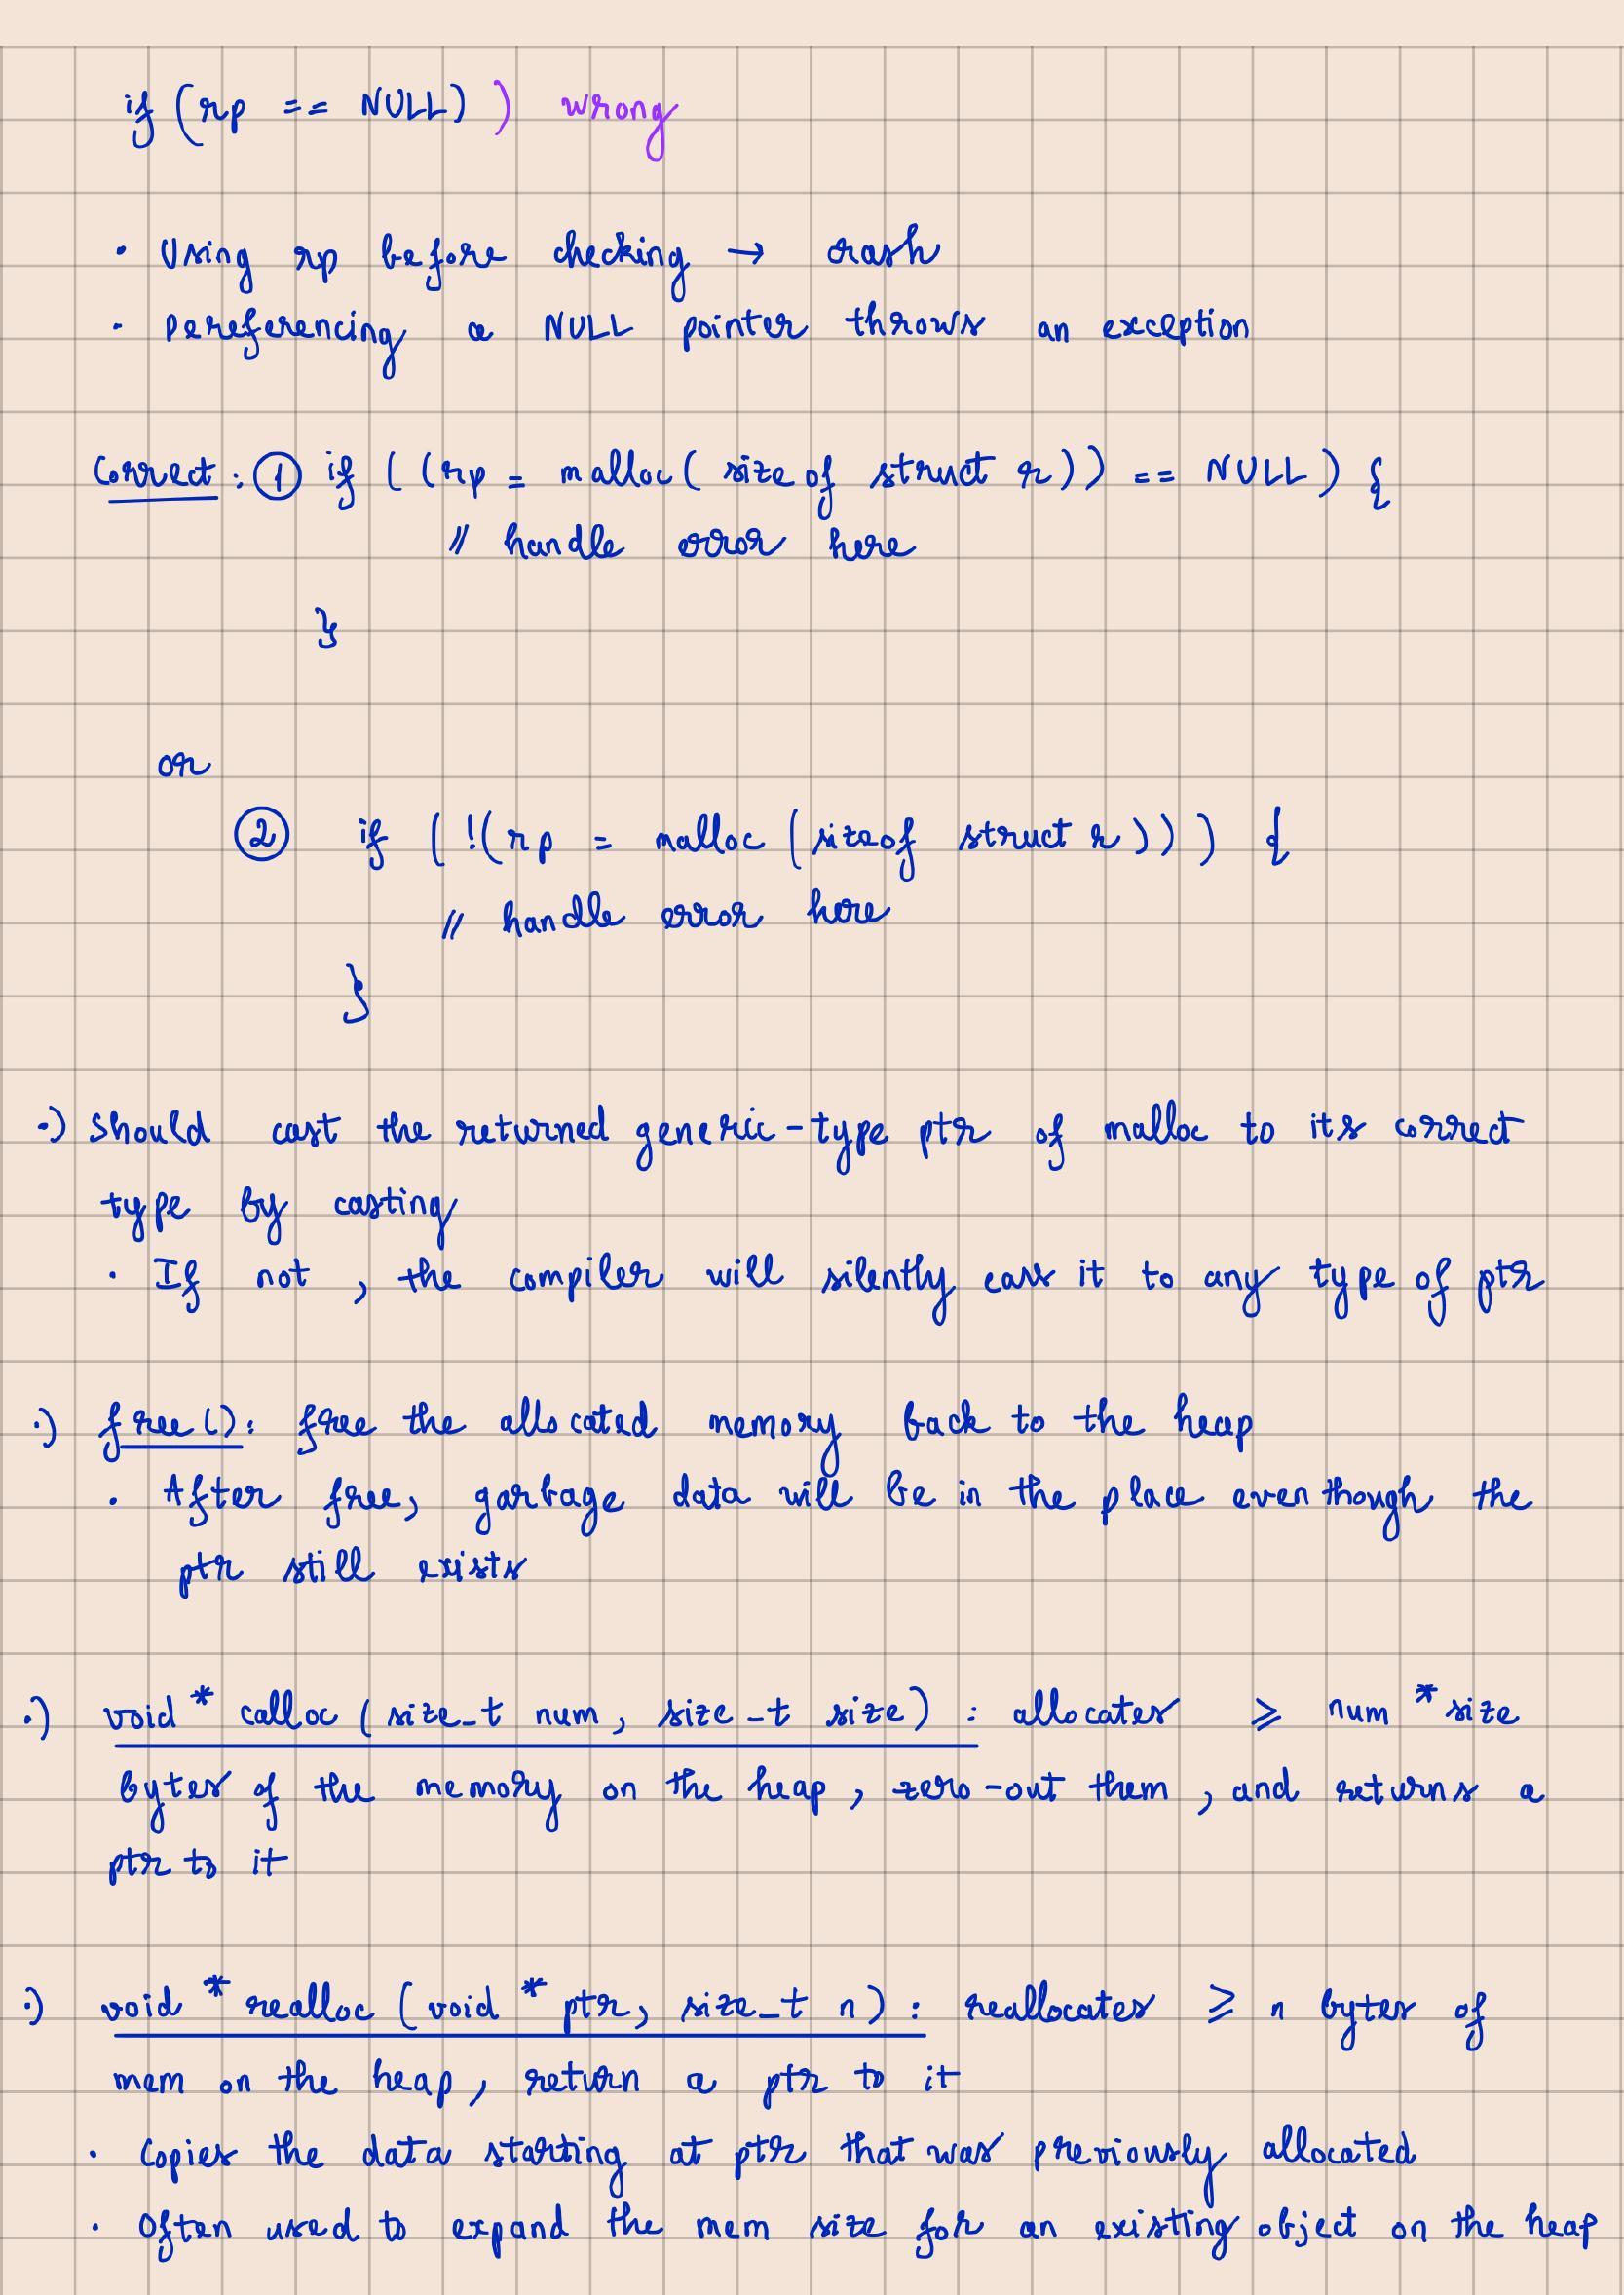 if (rp == NULL) } wrong
• Using rp before checking → crash
• Dereferencing a NULL pointer throws an exception
Correct : ① if ( (rp = malloc( size of struct r)) == NULL ) {
// handle error here
}
or
② if ( !(rp = malloc (sizeof struct r ))) {
// handle error here
}
•) Should cast the returned generic-type ptr of malloc to its correct
type by casting
• If not , the compiler will silently cass it to any type of ptr
•) free(): free the allocated memory back to the heap
• After free, garbage data will be in the place even though the
ptr still exists
•) void * calloc ( size_t num , size_t size) : allocates ⩾ num * size
bytes of the memory on the heap , zero-out them , and returns a
ptr to it
•) void * realloc ( void * ptr, size_t n) : reallocates ⩾ n bytes of
mem on the heap, return a ptr to it
• Copies the data starting at ptr that was previously allocated
• Often used to expand the mem size for an existing object on the heap